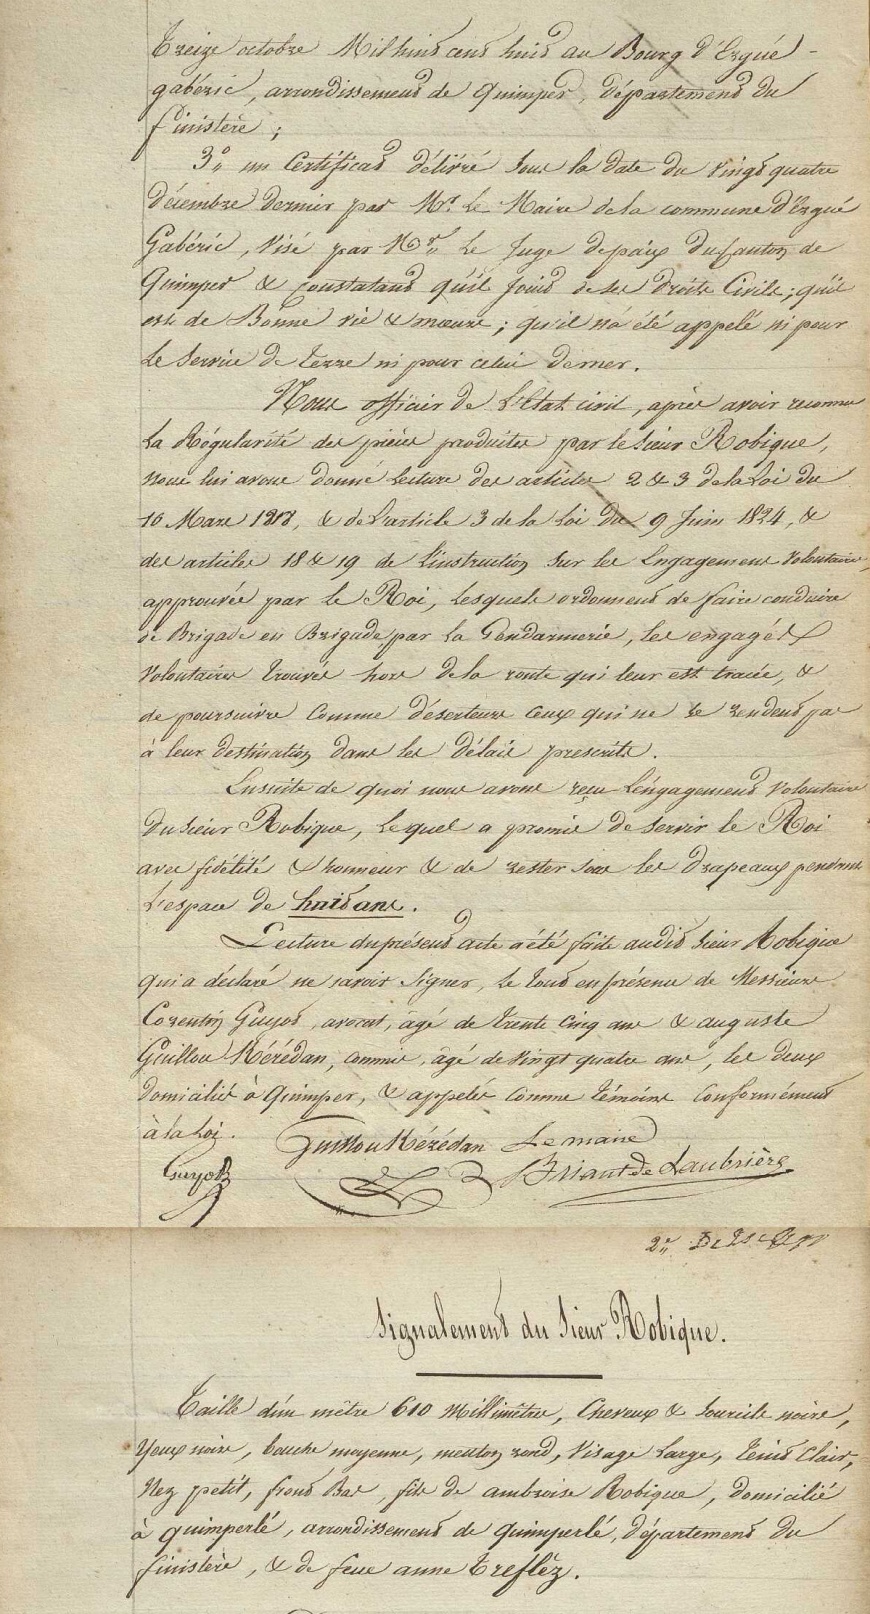 Treize octobre Mil huit cent huit au Bourg d'Ergué-
gabéric, arrondissement de Quimper, département du
finistère ;
3° un Certificat délivré sous la date du vingt quatre
décembre dernier par Mr. Le Maire de la commune d'Ergué
Gabéric, visé par Mr. Le Juge de paix du Canton de
Quimper & constatant qu'il jouit de ses droits Civils ; qu'il
est de Bonne vie & mœurs ; qu'il n'a été appelé ni pour
Le Service de terre ni pour celui de mer.
Nous officier de L'Etat civil, après avoir reconnu
La Régularité des pièces produites par le Sieur Robique,
nous lui avons donné Lecture des articles 2 & 3 de la Loi du
10 Mars 1818, & de L'article 3 de la Loi du 9 Juin 1824, &
des articles 18 & 19 de L'instruction sur les Engagemens Volontaires,
approuvée par le Roi, Lesquels ordonnent de faire conduire
de Brigade en Brigade, par La Gendarmerie, les engagés
Volontaires trouvés hors de la route qui leur est tracée, &
de poursuivre comme déserteurs ceux qui ne se rendent pas
à leur destination dans les délais prescrits.
Ensuite de quoi nous avons reçu L'engagement Volontaire
du Sieur Robique, Lequel a promis de servir le Roi
avec fidélité & honneur & de rester sous les drapeaux pendant
L'espace de huit ans.
Lecture du présent acte a été faite audit Sieur Robique
qui a déclaré ne savoir signer, Le tout en présence de Messieurs
Corentin Guyot, avocat, âgé de trente cinq ans & auguste
Guillou Kérédan, commis, âgé de vingt quatre ans, les deux
domiciliés à Quimper, & appelés comme témoins conformément
à la Loi.
Guillou Kérédan Le maire
Guyot Briant de Laubrière
Signalement du Sieur Robique.
Taille d'un mètre 610 Millimètres, Cheveux & Sourcils noirs,
Yeux noirs, bouche moyenne, menton rond, Visage Large, teint Clair,
Nez petit, front Bas, fils de ambroise Robique, domicilié
à quimperlé, arrondissement de quimperlé, département du
finistère, & de feue anne Trefléz.